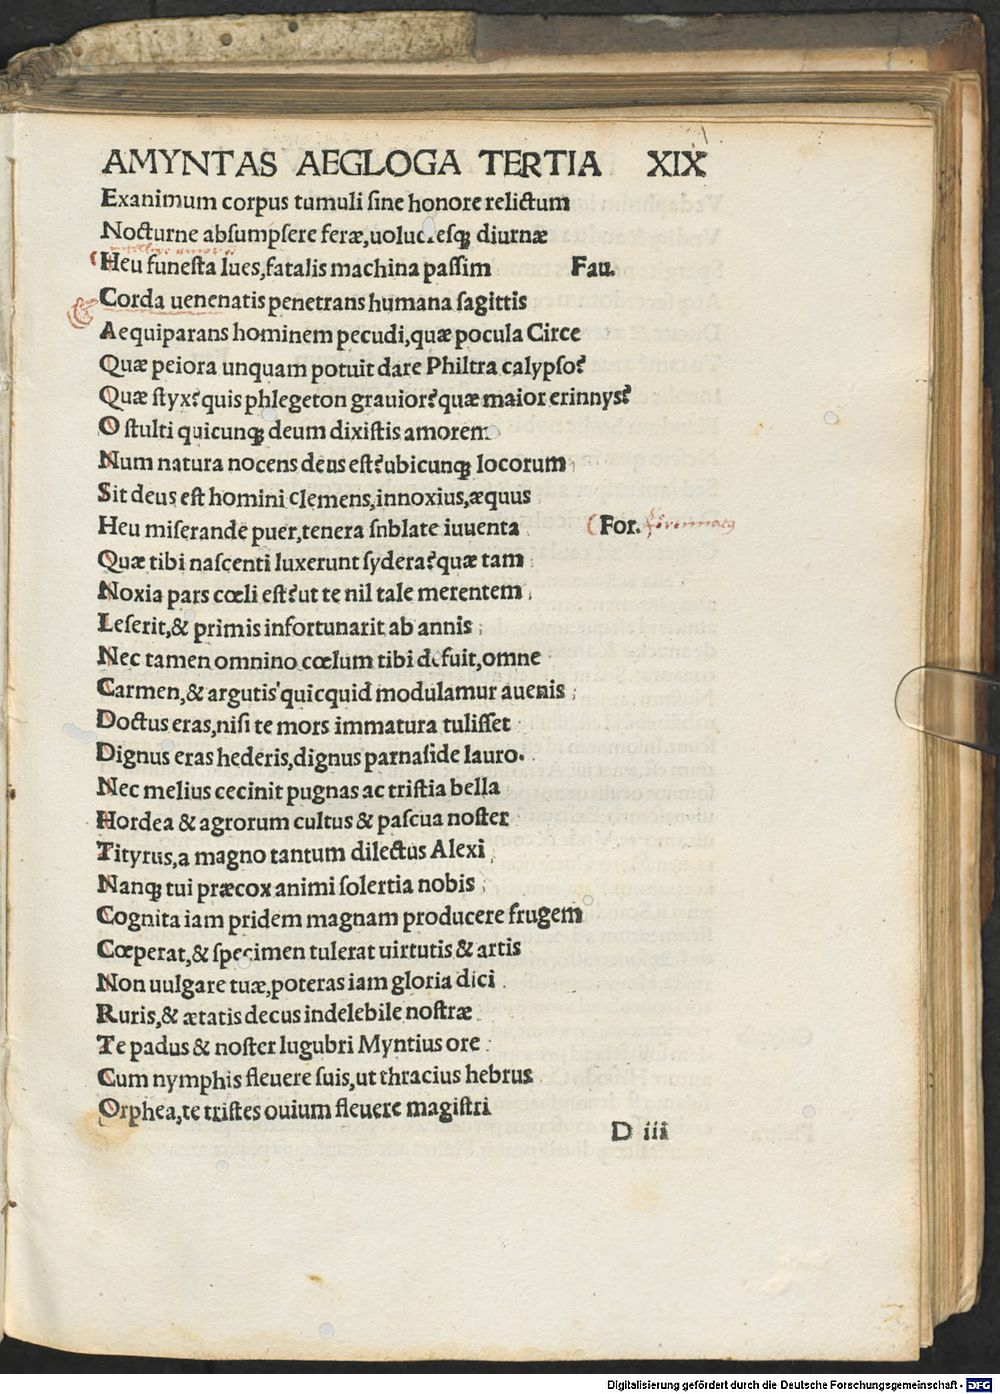 AMYNTAS AEGLOGA TERTIA XIX
Exanimum corpus tumuli ſine honore relictum
Nocturne abſumpſere feræ, uolucresqꝫ diurnæ
Heu funeſta lues, fatalis machina paſſim Fau.
Corda uenenatis penetrans humana ſagittis
Aequiparans hominem pecudi, quæ pocula Circe
Quæ peiora unquam potuit dare Philtra calypſo?
Quæ ſtyx? quis phlegeton grauior? quæ maior erinnys?
O ſtulti quicunqꝫ deum dixiſtis amorem
Num natura nocens deus eſt? ubicunqꝫ locorum
Sit deus eſt homini clemens, innoxius, æquus
Heu miſerande puer, tenera ſnblate iuuenta For. fortunatus
Quæ tibi naſcenti luxerunt ſydera? quæ tam
Noxia pars cœli eſt? ut te nil tale merentem
Leſerit, & primis infortunarit ab annis
Nec tamen omnino cœlum tibi defuit, omne
Carmen, & argutis quicquid modulamur auenis
Doctus eras, niſi te mors immatura tuliſſet
Dignus eras hederis, dignus parnaſide lauro.
Nec melius cecinit pugnas ac triſtia bella
Hordea & agrorum cultus & paſcua noſter
Tityrus, a magno tantum dilectus Alexi
Nanqꝫ tui præcox animi ſolertia nobis
Cognita iam pridem magnam producere frugem
Cœperat, & ſpecimen tulerat uirtutis & artis
Non uulgare tuæ, poteras iam gloria dici
Ruris, & ætatis decus indelebile noſtræ
Te padus & noſter lugubri Myntius ore
Cum nymphis fleuere ſuis, ut thracius hebrus
Orphea, te triſtes ouium fleuere magiſtri
D iii
Digitalisierung gefördert durch die Deutsche Forschungsgemeinschaft - DFG